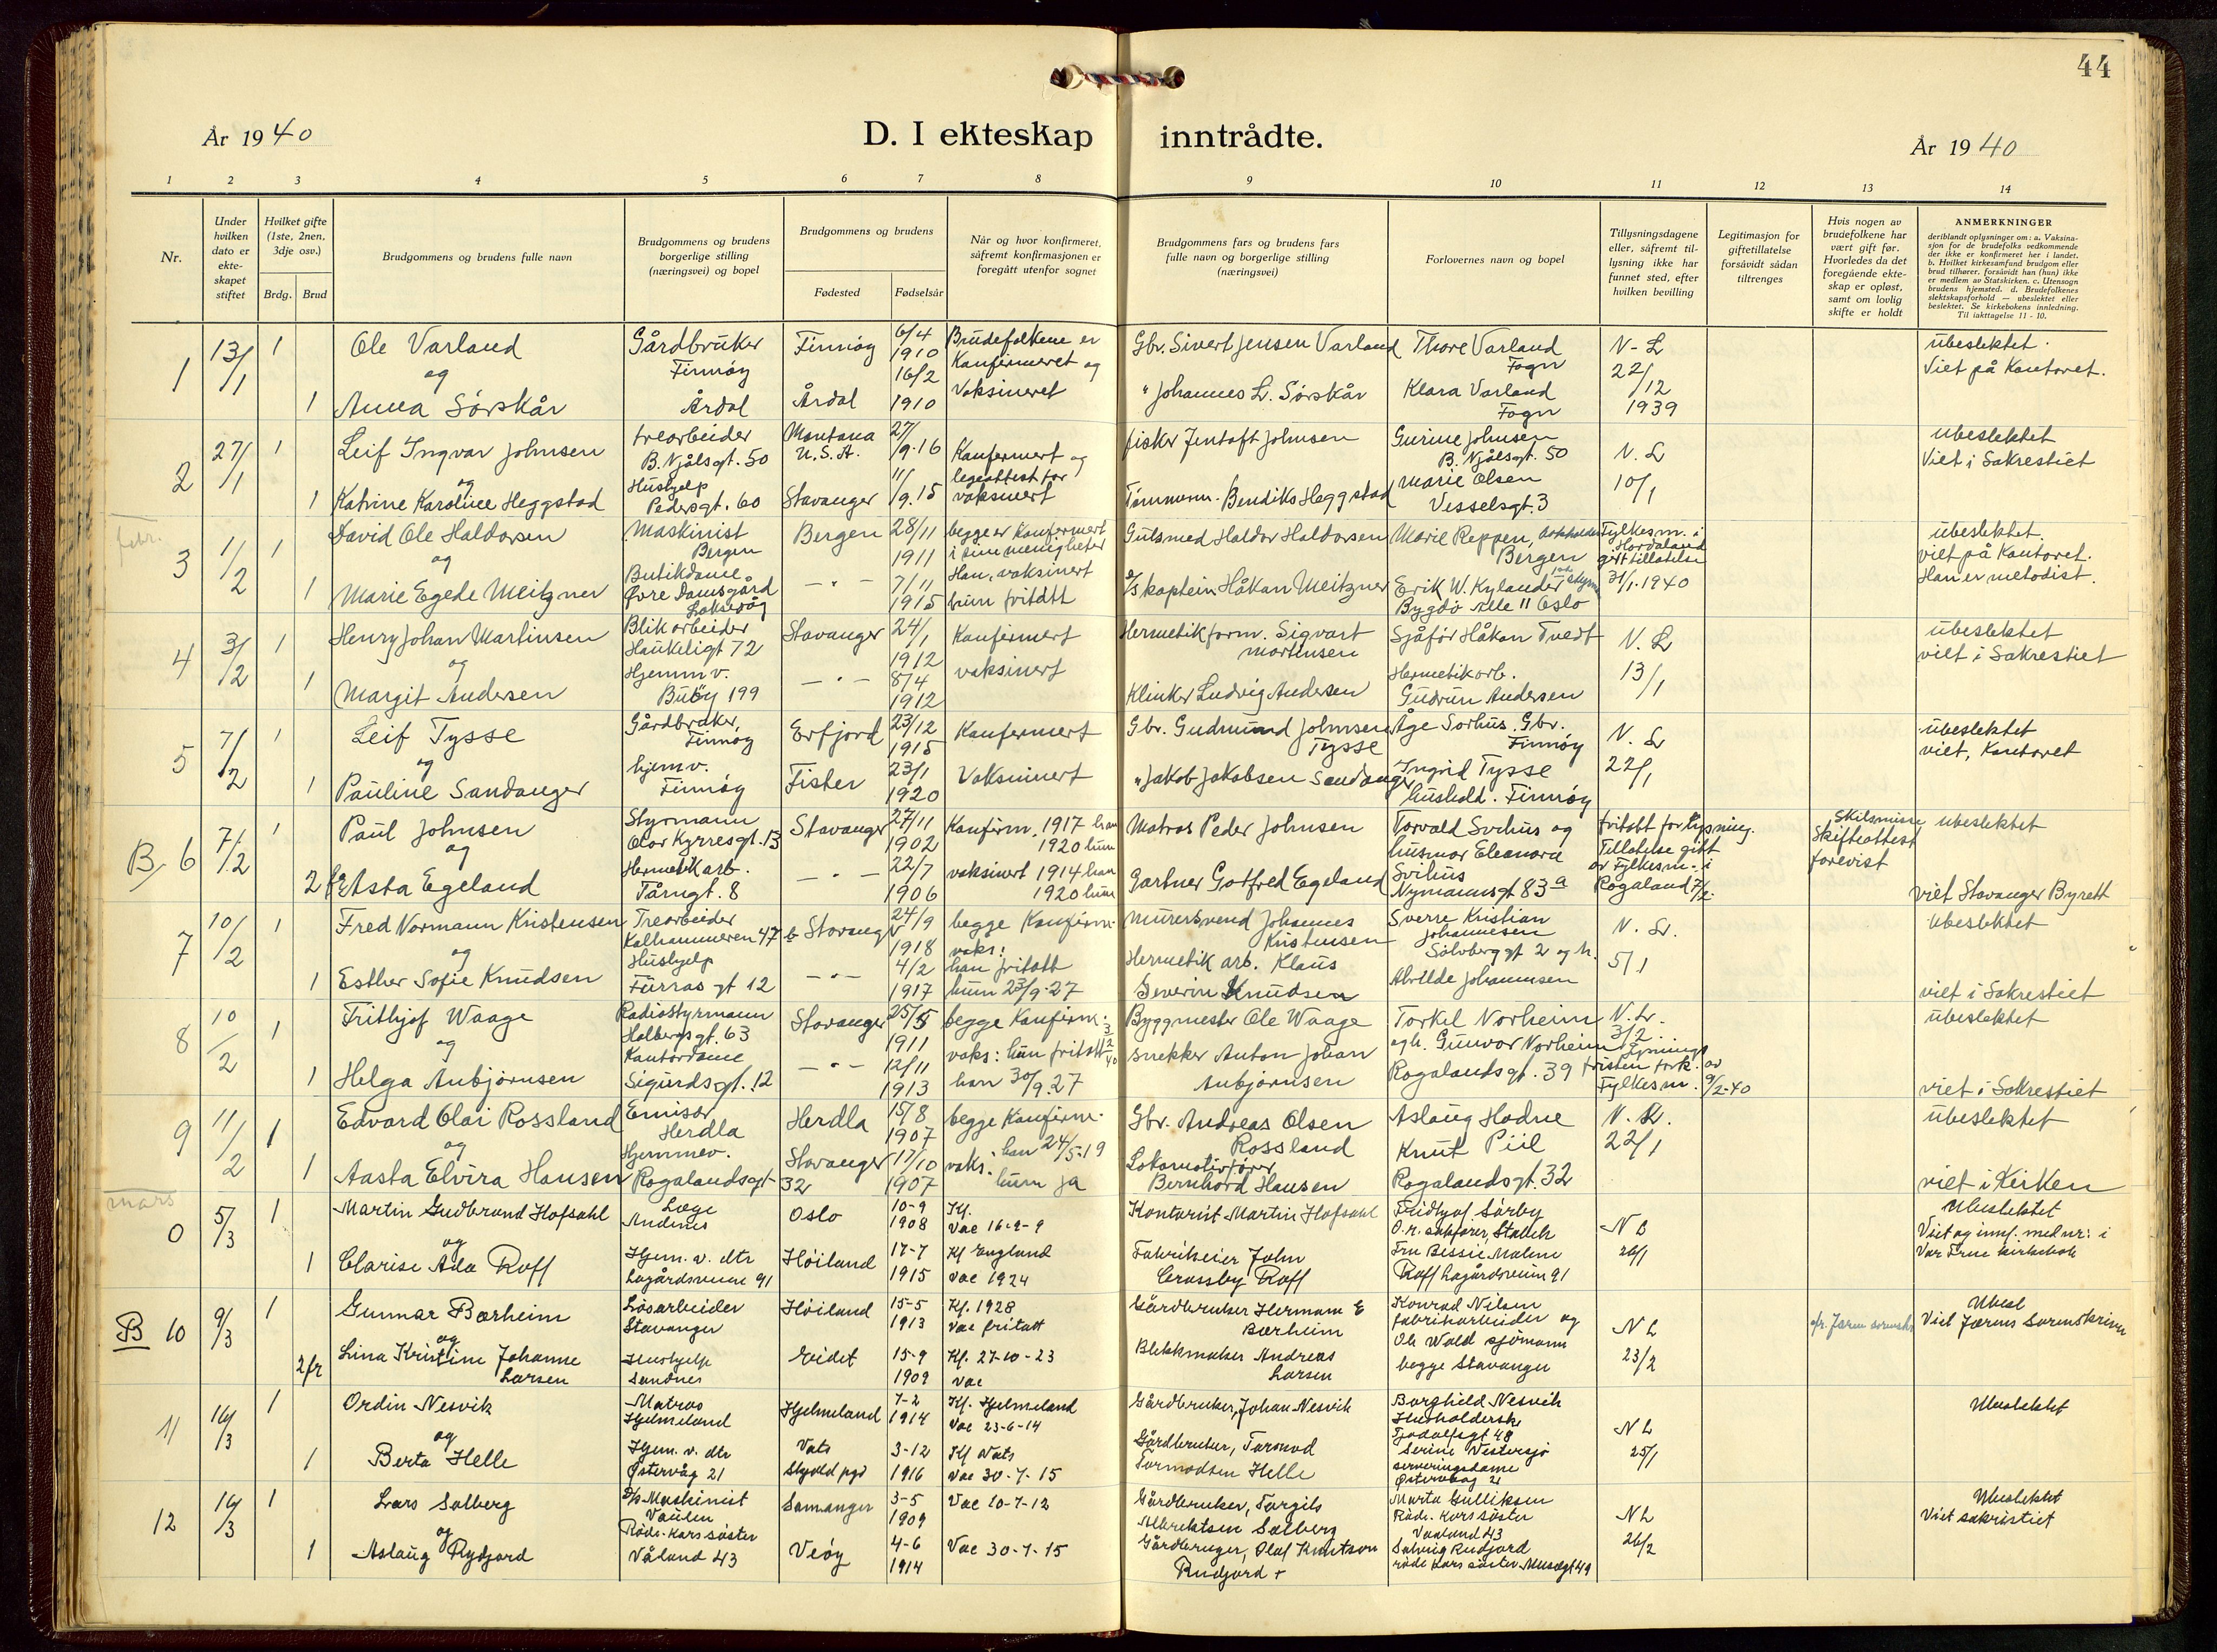 44
År 1940
D. I ekteskap inntrådte.
År 1940
1 2 3 4 5 6 7 8 9 10 11 12 13 14
Nr.
Under hvilken dato er ekte-skapet stiftet
Hvilket gifte (1ste, 2nen, 3dje osv.)
Brdg. Brud
Brudgommens og brudens fulle navn
Brudgommens og brudens borgerlige stilling (næringsvei) og bopel
Brudgommens og brudens
Fødested Fødselsår
Når og hvor konfirmeret, såfremt konfirmasjonen er foregått utenfor sognet
Brudgommens fars og brudens fars fulle navn og borgerlige stilling (næringsvei)
Forlovernes navn og bopel
Tillysningsdagene eller, såfremt til-lysning ikke har funnet sted, efter hvilken bevilling
Legitimasjon for giftetillatelse forsåvidt sådan tiltrenges
Hvis nogen av brudefolkene har vært gift før. Hvorledes da det foregående ekte-skap er opløst, samt om lovlig skifte er holdt
ANMERKNINGER
deriblandt oplysninger om: a. Vaksina-sjon for de brudefolks vedkommende der ikke er konfirmeret her i landet. b. Hvilket kirkesamfund brudgom eller brud tilhører, forsåvidt han (hun) ikke er medlem av Statskirken. c. Utensogn brudens hjemsted. d. Brudefolkenes slektskapsforhold — ubeslektet eller beslektet. Se kirkebokens innledning. Til iakttagelse 11 - 10.
1 13/1 1 Ole Varland Gårdbruker Finnøy Finnøy 6/4 1910 Brudefolkene er Konfirmeret og Vaksineret Gbr. Sivert Jensen Varland Thore Varland Fogn N-L 22/12 1939 ubeslektet. Viet på Kontoret.
og
1 Anna Sørskår Årdal Årdal 16/2 1910 " Johannes L. Sørskår Klara Varland Fogn
2 27/1 1 Leif Ingvar Johnsen trearbeider B. Njålsgt. 50 Montana U.S.A. 27/9.16 Konfermert og legeattest for vaksinert fisker Jentoft Johnsen Gurine Johnsen B. Njålsgt. 50 N. L 10/1 ubeslektet Viet i Sakrestiet
og
1 Katrine Karoline Heggstad Hushjelp Pedersgt. 60 Stavanger 11/9.15 Tømmerm. Bendiks Heggstad Marie Olsen Vesselsgt. 3
febr.
3 1/2 1 David Ole Haldorsen Maskinist Bergen Bergen 28/11 1911 begge er Konfirmert i sine menigheter Han, vaksinert Gulsmed Haldor Haldorsen Marie Reppen, Bergen Fylkesm. i Hordaland gift tillatelse 31/1.1940 ubeslektet, viet på Kontoret. Han er metodist.
og
1 Marie Egede Meitzner Butikdame Øvre Damsgård Laksevåg - " - 7/11 1915 hun fritatt S/S kaptein Håkan Meitzner Erik W. Kylander Bygdø Alle 11 Oslo
4 3/2 1 Henry Johan Martinsen Blikarbeider Haukeligt 72 Stavanger 24/1 1912 Konfirmert vaksinert Hermetikform. Sigvart Martinsen Sjåfør Håkon Tvedt N. L 13/1 ubeslektet viet i Sakrestiet
og
1 Margit Andersen Hjemmv. Buøy 199 - " - 8/4 1912 Klinker Ludvig Andersen Hermetikarb. Gudrun Andersen
5 7/2 1 Leif Tysse Gårdbruker, Finnøy Erfjord 23/12 1915 Konfermert Gbr. Gudmund Johnsen Tysse Åge Sorhus, Gbr. Finnøy N. L 22/1 ubeslektet viet, Kontoret
og
1 Pauline Sandanger hjemv. Finnøy Fister 23/1 1920 Vaksinert " Jakob Jakobsen Sandanger Ingrid Tysse hushold. Finnøy
B 6 7/2 1 Paul Johnsen Styrmann Olav Kyrresgt. 13 Stavanger 27/11 1902 Konfirm. 1917 han 1920 hun Matros Peder Johnsen Torvald Svihus og husmor Eleonora Svihus Nymannsgt 83a fritatt for lysning. Tillatelse gitt av Fylkesm. i Rogaland 7/2. Skilsmisse Skifteattest forevist ubeslektet
og
2 fr Asta Egeland Hermetikarb. Tårngt. 8 - " - 22/7 1906 vaksinert 1914 han 1920 hun Gartner Gotfred Egeland viet Stavanger Byrett
7 10/2 1 Fred Normann Kristensen Trearbeider Kalhammeren 47 b Stavanger 24/9 1918 begge Konfirm. vaks: Murersvend Johannes Kristensen Sverre Kristian Johannesen Solvberggt 2 og h. N. L. 5/1 ubeslektet
og
1 Esther Sofie Knudsen Hushjelp Furras gt 12 - " - 4/2 1917 han fritatt hun 23/9.27 Hermetik arb. Klaus Severin Knudsen Alvilde Johannesen viet i Sakrestiet
8 10/2 1 Frithjof Waage Radiostyrmann Holbergsgt. 63 Stavanger 25/5 1911 begge Konfirm. Byggmester Ole Waage Torkel Norheim N. L. 3/2. ubeslektet
og
1 Helga Anbjørnsen Kontordame Sigurdsgt. 12 - " - 12/11 1913 vaks: hun fritatt 3/2 40 han 30/9.27 snekker Anton Johan Anbjørnsen og h. Gunvor Norheim Rogalandsgt. 39 Lysnings fristen fork. av Fylkesm. 9/2-40 viet i Sakrestiet
9 11/2 1 Edvard Olai Rossland Emisær Herdla Herdla 15/8 1907 begge Konfirm. Gbr. Andreas Olsen Rossland Aslaug Hodne N. L. 22/1 ubeslektet
og
1 Aasta Elvira Hansen Hjemmev. Rogalandsgt- 32 Stavanger 17/10 1907 vaks: han 24/5.19 hun ja Lokomotivfører Bernhard Hansen Knut Piil Rogalandsgt. 32 viet i Kirken
mars
0 5/3 1 Martin Gudbrand Hofsahl Læge Andenes Oslo 10-9 1908 Kf. Vac 16-9-9 Kontorist Martin Hofsahl Fridtjof Sörby O.r. sakfører, N L 26/1 Ubeslektet Viet og innf. med nr: i Vår Frue kirkebok
og
1 Clarise Ada Roff Hjem. v. dtr Lagårdsveien 91 Höiland 17-7 1915 Kf England Vac 1924 Fabrikeier John Crossby Roff Fru Bessie Malene Roff Lagårdsveien 91
B 10 9/3 1 Gunnar Bærheim Løsarbeider Stavanger Höiland 15-5 1913 Kf. 1928 Vac fritatt Gårdbruker Hermann E Bærheim Konrad Nilsen fabrikarbeider og N L 23/2 Ubesl Viet Jærens Sorenskriver
og
2 fr Lina Kristine Johanne Larsen Hushjelp Sandnes Eidet 15-9 1909 Kf. 27-10-23 Vac Blikkmaker Andreas Larsen Ole Wold sjömann begge Stavanger
11 16/3 1 Ordin Nesvik Matros Hjelmeland Hjelmeland 7-2 1914 Kf. Hjelmeland Vac 23-6-14 Gårdbruker, Johan Nesvik Borghild Nesvik Husholderske Tjodolfsgt 48 N L 25/1 Ubeslektet
og
1 Berta Helle Hjem. v. dtr Østervåg 21 Vats Skjold pgd 3-12 1916 Kf Vats Vac 30-7-15 Gårdbruker, Tormod Tormodsen Helle Serine Vestersjø serveringsdame Østervaag 21
12 16/3 1 Lars Solberg D/s Maskinist Vaulen Samanger 3-5 1909 Vac 10-7-12 Gårdbruker, Torgils Albrektsen Solberg Marta Gulliksen Röde-Kors søster Vaaland 43 N L 26/2 Ubeslektet Viet sakristiet
og
1 Aslaug Rydjord Röde-Kors søster Våland 43 Veøy 4-6 1914 Vac 30-7-15 Gårdbruger, Olaf Knutson Rudjord + Solveig Rudjord röde kors søster Musegt 49